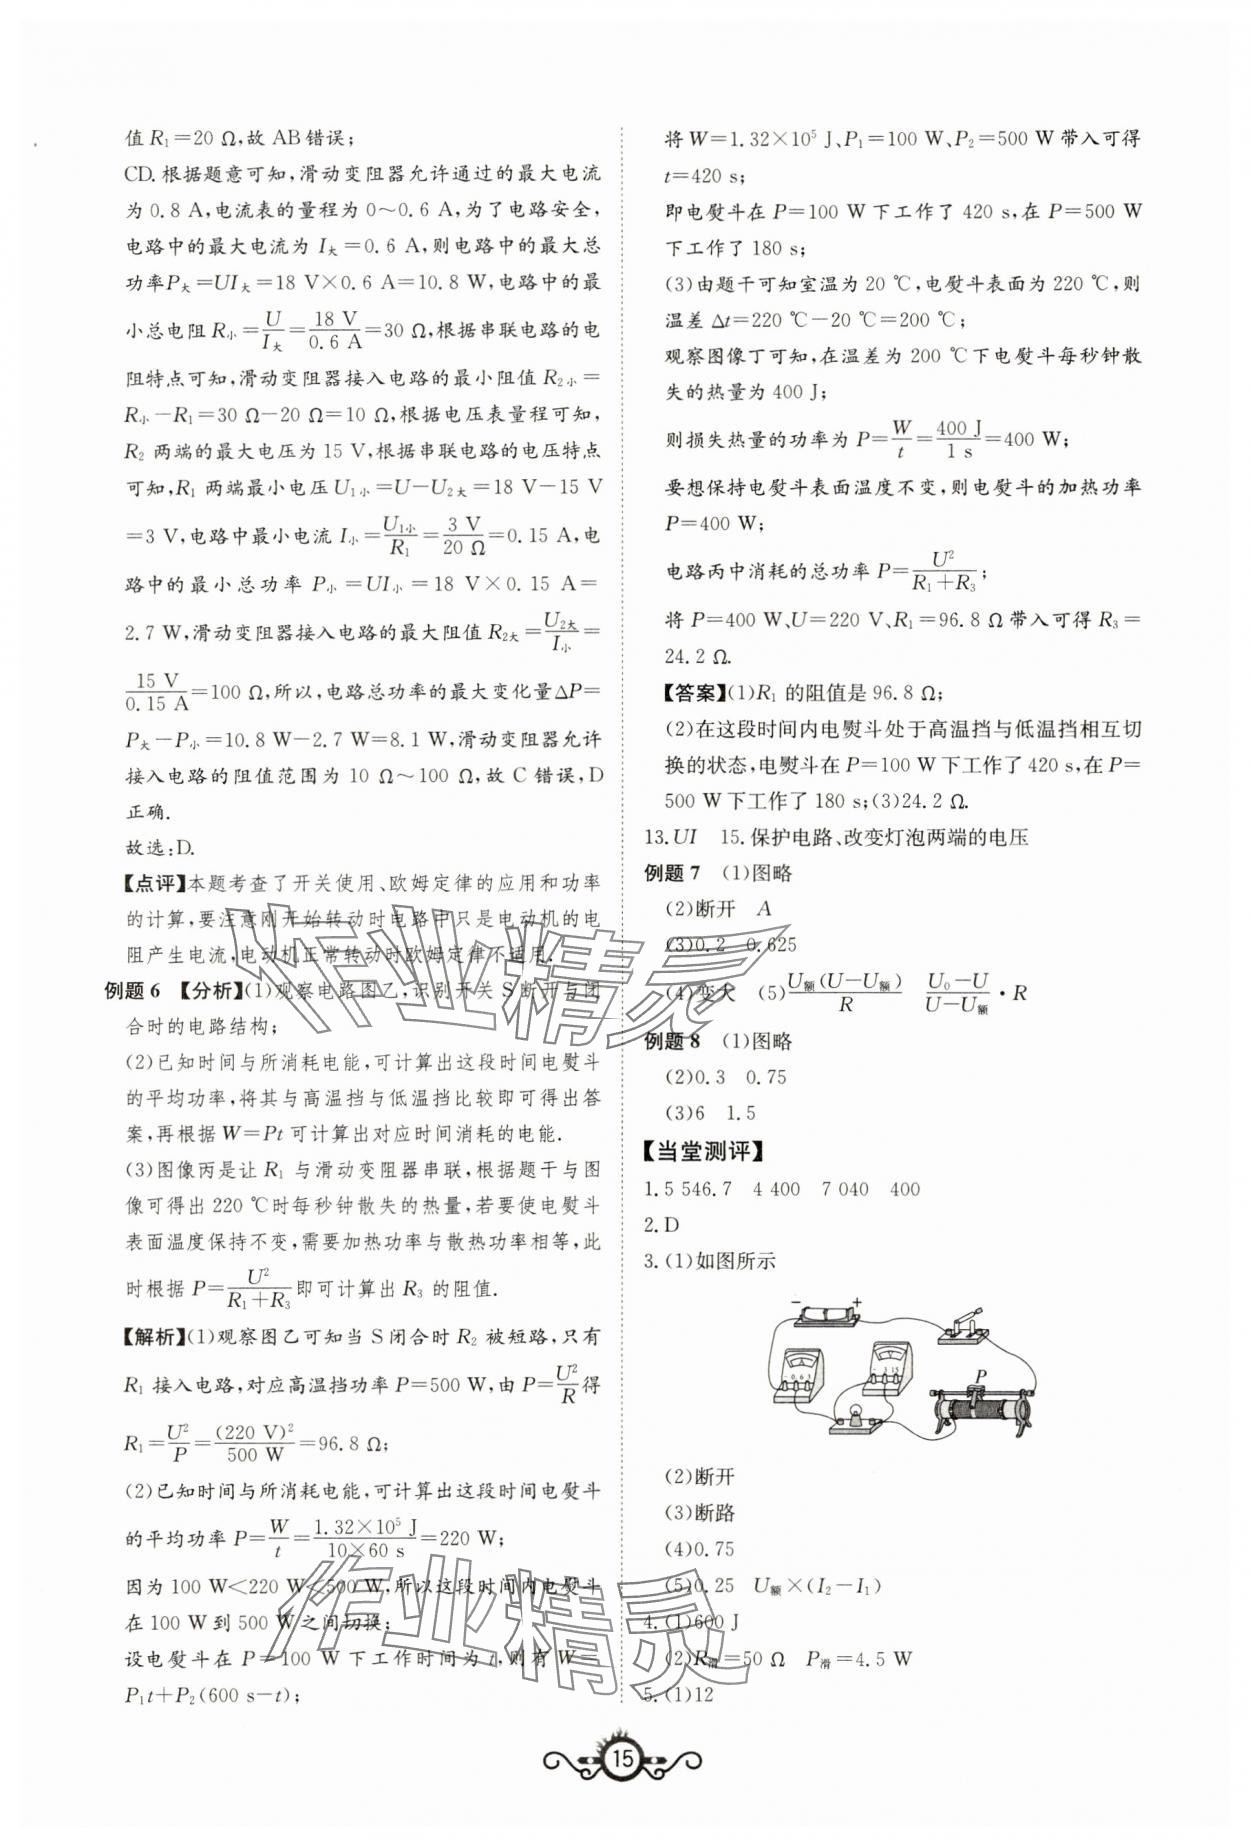 值 R₁=20 Ω,故 AB 错误;
CD.根据题意可知,滑动变阻器允许通过的最大电流
为 0.8 A,电流表的量程为 0～0.6 A,为了电路安全,
电路中的最大电流为 I大=0.6 A,则电路中的最大总
功率P大=UI大=18 V×0.6 A=10.8 W,电路中的最
小总电阻 R小=U/I大=18 V/0.6 A=30 Ω,根据串联电路的电
阻特点可知,滑动变阻器接入电路的最小阻值 R₂小=
R小-R₁=30 Ω-20 Ω=10 Ω,根据电压表量程可知,
R₂ 两端的最大电压为 15 V,根据串联电路的电压特点
可知,R₁ 两端最小电压 U₁小=U-U₂大=18 V-15 V
=3 V,电路中最小电流 I小=U₁小/R₁=3 V/20 Ω=0.15 A,电
路中的最小总功率 P小=UI小=18 V×0.15 A=
2.7 W,滑动变阻器接入电路的最大阻值 R₂大=U₂大/I小=
15 V/0.15 A=100 Ω,所以,电路总功率的最大变化量 ΔP=
P大-P小=10.8 W-2.7 W=8.1 W,滑动变阻器允许
接入电路的阻值范围为 10 Ω～100 Ω,故 C 错误,D
正确.
故选:D.
【点评】本题考查了开关使用、欧姆定律的应用和功率
的计算,要注意刚开始转动时电路中只是电动机的电
阻产生电流,电动机正常转动时欧姆定律不适用.
例题 6 【分析】(1)观察电路图乙,识别开关 S 断开与闭
合时的电路结构;
(2)已知时间与所消耗电能,可计算出这段时间电熨斗
的平均功率,将其与高温挡与低温挡比较即可得出答
案,再根据 W=Pt 可计算出对应时间消耗的电能.
(3)图像丙是让 R₁ 与滑动变阻器串联,根据题干与图
像可得出 220 ℃时每秒钟散失的热量,若要使电熨斗
表面温度保持不变,需要加热功率与散热功率相等,此
时根据 P=U²/(R₁+R₃)即可计算出 R₃ 的阻值.
【解析】(1)观察图乙可知当 S 闭合时 R₂ 被短路,只有
R₁ 接入电路,对应高温挡功率 P=500 W,由 P=U²/R得
R₁=U²/P=(220 V)²/500 W=96.8 Ω;
(2)已知时间与所消耗电能,可计算出这段时间电熨斗
的平均功率 P=W/t=1.32×10⁵ J/10×60 s=220 W;
因为 100 W<220 W<500 W,所以这段时间内电熨斗
在 100 W 到 500 W 之间切换;
设电熨斗在 P=100 W 下工作时间为 t,则有 W=
P₁t+P₂(600 s-t);
将 W=1.32×10⁵ J、P₁=100 W、P₂=500 W 带入可得
t=420 s;
即电熨斗在 P=100 W 下工作了 420 s,在 P=500 W
下工作了 180 s;
(3)由题干可知室温为 20 ℃,电熨斗表面为 220 ℃,则
温差 Δt=220 ℃-20 ℃=200 ℃;
观察图像丁可知,在温差为 200 ℃下电熨斗每秒钟散
失的热量为 400 J;
则损失热量的功率为 P=W/t=400 J/1 s=400 W;
要想保持电熨斗表面温度不变,则电熨斗的加热功率
P=400 W;
电路丙中消耗的总功率 P=U²/(R₁+R₃);
将 P=400 W、U=220 V、R₁=96.8 Ω 带入可得 R₃=
24.2 Ω.
【答案】(1)R₁ 的阻值是 96.8 Ω;
(2)在这段时间内电熨斗处于高温挡与低温挡相互切
换的状态,电熨斗在 P=100 W 下工作了 420 s,在 P=
500 W 下工作了 180 s;(3)24.2 Ω.
13.UI 15.保护电路、改变灯泡两端的电压
例题 7 (1)图略
(2)断开 A
(3)0.2 0.625
(4)变大 (5)U额(U-U额)/R (U₀-U)/(U-U额)·R
例题 8 (1)图略
(2)0.3 0.75
(3)6 1.5
【当堂测评】
1.5 546.7 4 400 7 040 400
2.D
3.(1)如图所示
- +
A
-0.6 3
V
-3 15
P
(2)断开
(3)断路
(4)0.75
(5)0.25 U额×(I₂-I₁)
4.(1)600 J
(2)R滑=50 Ω P滑=4.5 W
5.(1)12
15
作业精灵
作业精灵